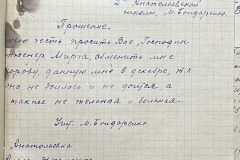 2 Анатольевской
школы, М. Бондаренко
Прошение.
Имею честь просить Вас, Господин
Инженер Мирча, обменить мне
корову, данную мне в декабре, т.к
она не доилась и не доится, а
также не тельная и больная.
Учит. М. Бондаренко
Анатольевка